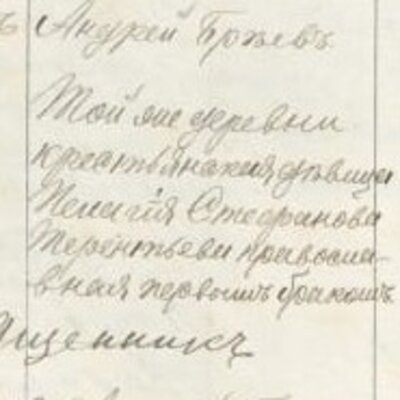 ъ Андрей
Той же деревни
крестьянская дѣвица
Пелагія Стефанова
Терентьева правосла-
вная первымъ бракомъ
ященникъ